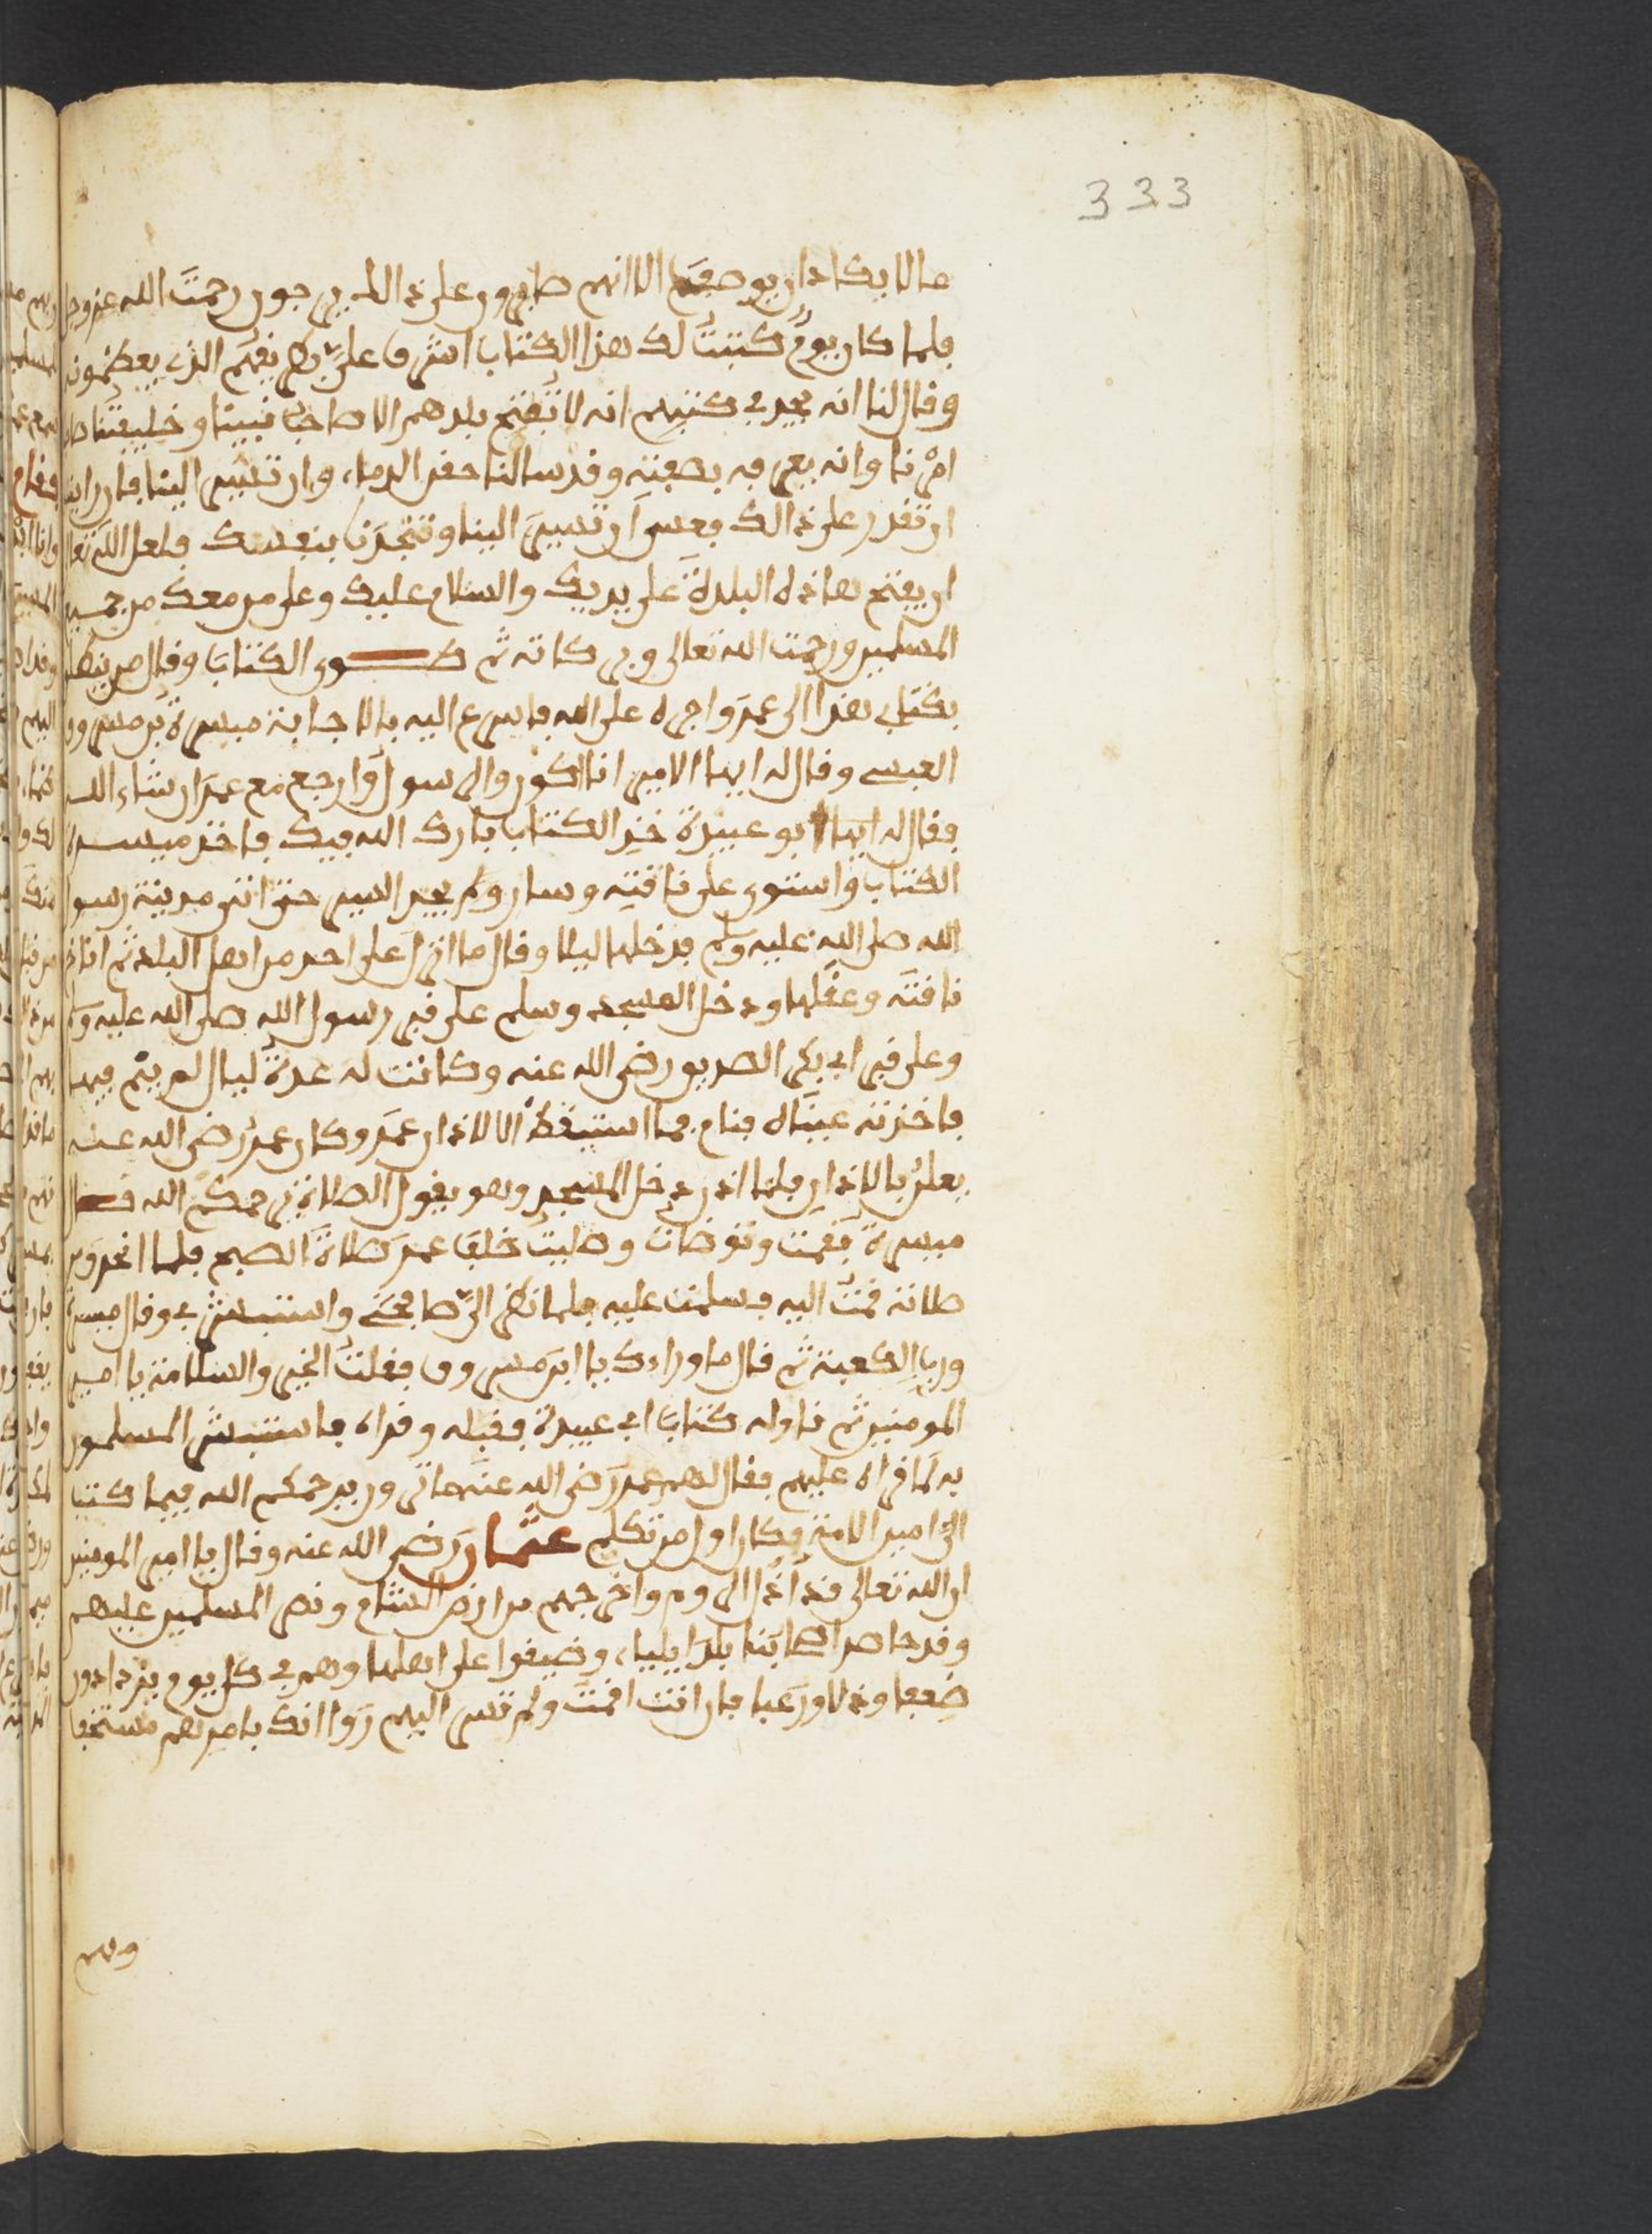 333
ما لا يكاد ان يوصف الا انهم صابرون على ذالك يرجون رحمت الله عز وجل
فلما كان يوم كتبت لك هذا الكتاب اشرف علي بطريقهم الذي يعظمونه
وقال لنا انه يجد في كتبهم انه لا تفتح بلدهم الا صاحب نبينا وخليفتنا صاحب
امرنا وانه يعرفه بصفته وقد سالنا حقن الدماء وان تسير الينا فان رايت
ان تقدر على ذالك فعسى ان تسير الينا وتنجدنا بنفسك فلعل الله تعالى
ان يفتح هاذه البلدة على يديك والسلام عليك وعلى من معك من جميع
المسلمين ورحمت الله تعالى وبركاته ثم طوى الكتاب وقال من ينطلق
بكتابي هذا الى عمر واجره على الله فاسرع اليه بالاجابة ميسرة بن مسروق
العبسي وقال له ايها الامير انا اكون الرسول وارجع مع عمر ان شاء الله
فقال له ابو عبيدة خذ الكتاب بارك الله فيك فاخذ ميسرة
الكتاب واستوى على ناقته وسار ولم يجد السير حتى اتى مدينة رسول
الله صلى الله عليه وسلم فدخلها ليلا وقال ما انزل على احد من اهل البلد ثم اناخ
ناقته وعقلها ودخل المسجد وسلم على قبر رسول الله صلى الله عليه وسلم
وعلى قبر ابي بكر الصديق رضي الله عنه وكانت له عدة ليال لم ينم فيها
فاخذته عيناه فنام فما استيقظ الا لاذان عمر وكان عمر رضي الله عنه
يعلن بالاذان فلما اذن دخل المسجد وهو يقول الصلاة يرحمكم الله قال
ميسرة فقمت وتوضات وصليت خلف عمر صلاة الصبح فلما انحرف من
صلاته قمت اليه فسلمت عليه فلما نظر الي صافحني واستبشر بي وقال ميسرة
ورب الكعبة ثم قال ما وراءك يا ابن مسروق فقلت الخير والسلامة يا امير
المومنين ثم ناوله كتاب ابي عبيدة فقبله وقراه فاستبشر المسلمون
به لما قراه عليهم فقال لهم عمر رضي الله عنه ما ترون يرحمكم الله فيما كتب
الي امين الامة فكان اول من تكلم عثمان رضي الله عنه وقال يا امير المومنين
ان الله تعالى قد اذل الروم واخرجهم من ارض الشام ونصر المسلمين عليهم
وقد حاصر اصحابنا بلد ايليا، وضيقوا على اهلها وهم في كل يوم يزدادون
ضعفا وذلا ورعبا فان انت اقمت ولم تسر اليهم راوا انك بامرهم مستخفا
وهم